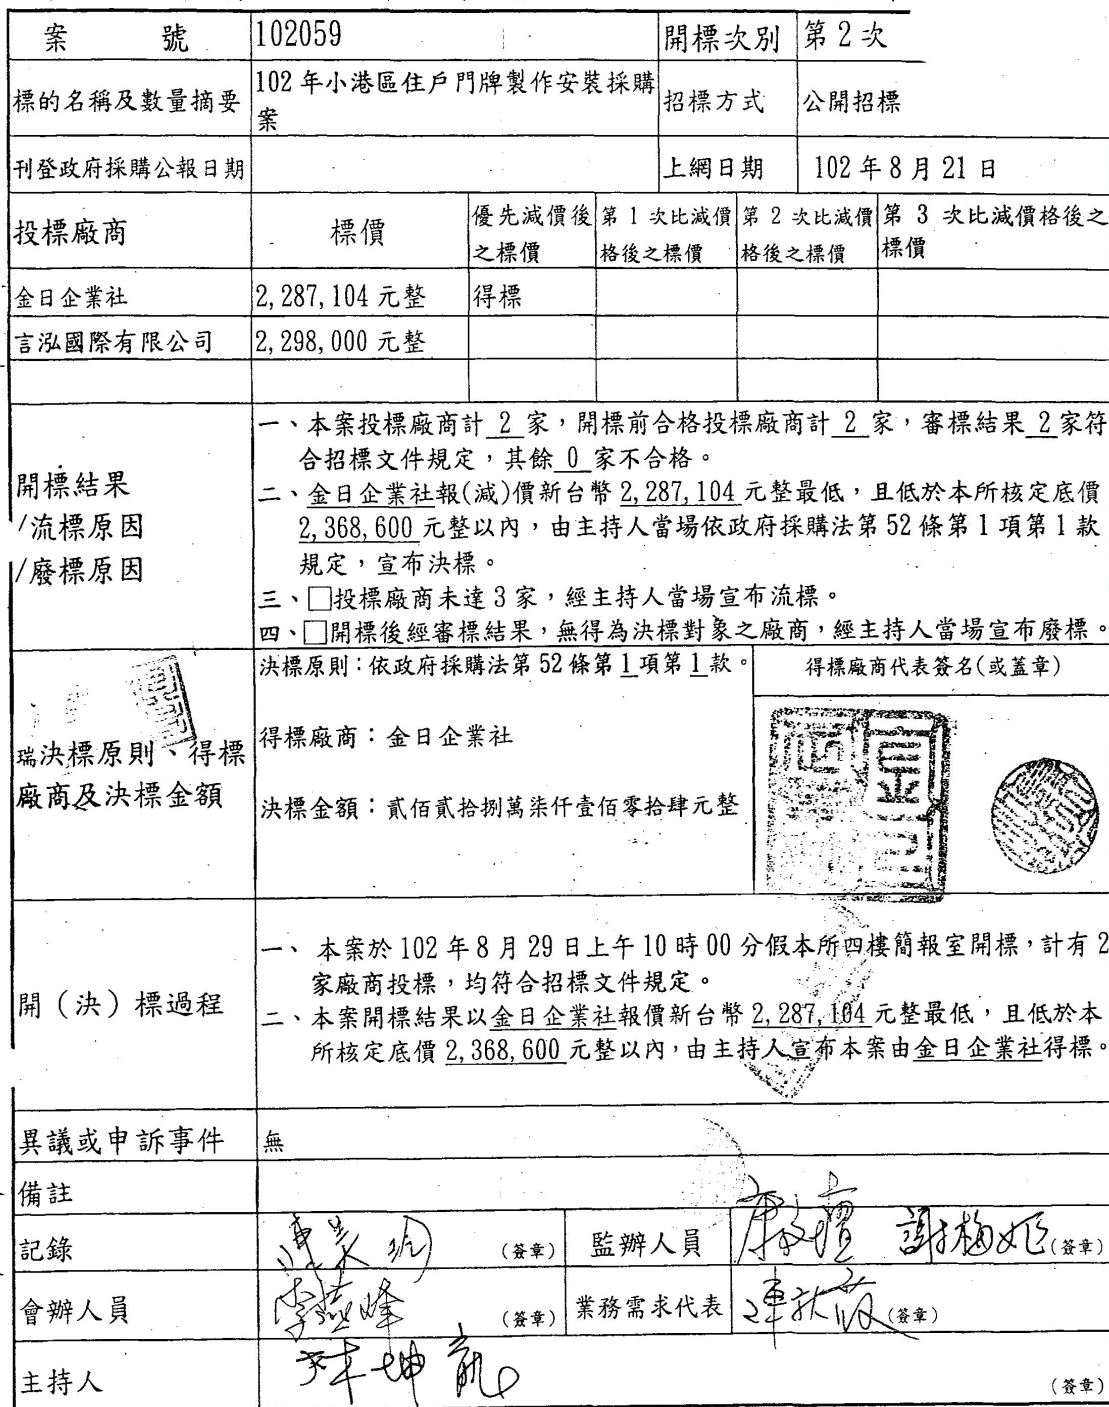 案 號 102059 開標次別 第2次
標的名稱及數量摘要 102年小港區住戶門牌製作安裝採購
案 招標方式 公開招標
刊登政府採購公報日期 上網日期 102年8月21日
投標廠商 標價 優先減價後 第1次比減價 第2次比減價 第3次比減價格後之
之標價 格後之標價 格後之標價 標價
金日企業社 2,287,104元整 得標
言泓國際有限公司 2,298,000元整
開標結果
/流標原因
/廢標原因
一、本案投標廠商計 2 家，開標前合格投標廠商計 2 家，審標結果 2 家符
合招標文件規定，其餘 0 家不合格。
二、金日企業社報(減)價新台幣 2,287,104 元整最低，且低於本所核定底價
2,368,600 元整以內，由主持人當場依政府採購法第52條第1項第1款
規定，宣布決標。
三、□投標廠商未達3家，經主持人當場宣布流標。
四、□開標後經審標結果，無得為決標對象之廠商，經主持人當場宣布廢標。
瑞決標原則、得標
廠商及決標金額
決標原則：依政府採購法第52條第1項第1款。
得標廠商：金日企業社
決標金額：貳佰貳拾捌萬柒仟壹佰零拾肆元整
得標廠商代表簽名(或蓋章)
開（決）標過程
一、 本案於102年8月29日上午10時00分假本所四樓簡報室開標，計有2
家廠商投標，均符合招標文件規定。
二、本案開標結果以金日企業社報價新台幣 2,287,104 元整最低，且低於本
所核定底價 2,368,600 元整以內，由主持人宣布本案由金日企業社得標。
異議或申訴事件 無
備註
記錄 (簽章) 監辦人員 謝梅姬 (簽章)
會辦人員 (簽章) 業務需求代表 (簽章)
主持人 (簽章)